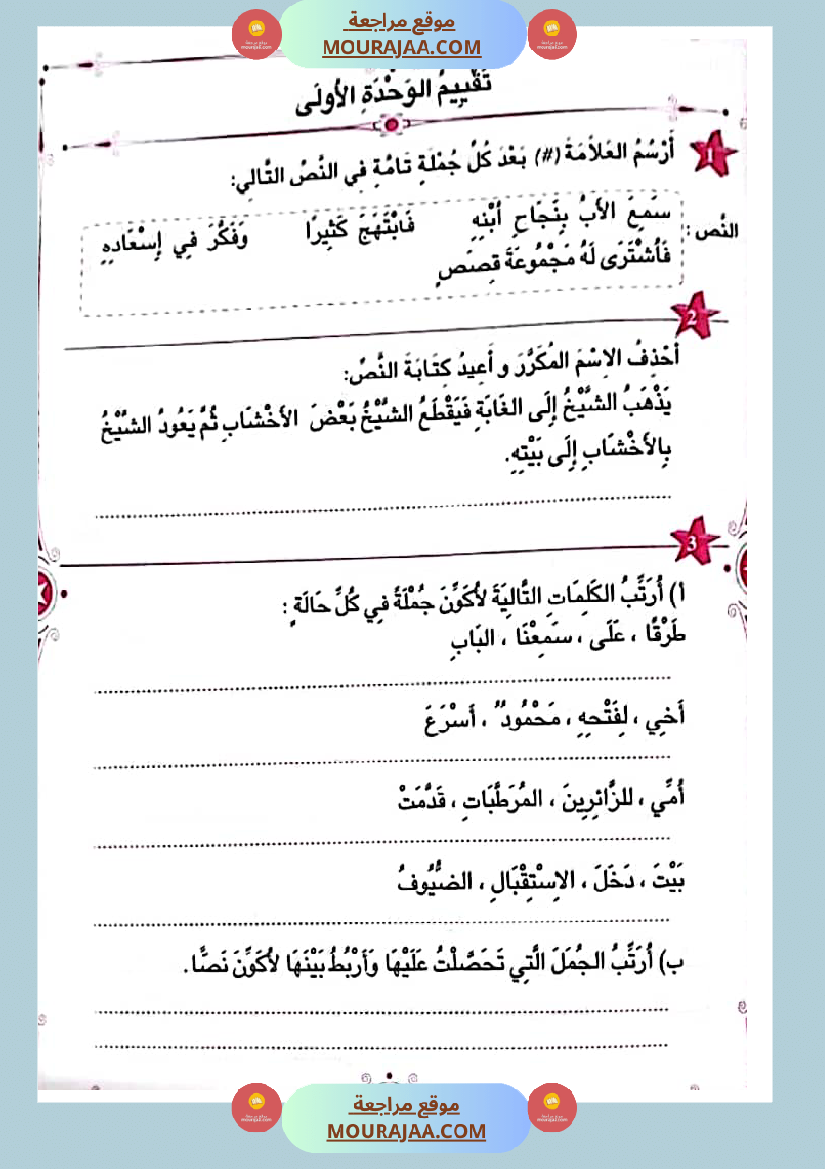 موقع مراجعة
MOURAJAA.COM
تَقْيِيمُ الوَحْدَةِ الأُولَى
1
أَرْسُمُ العَلاَمَةَ (#) بَعْدَ كُلِّ جُمْلَةٍ تَامَّةٍ فِي النَّصِّ التَّالِي:
النَّص: سَمِعَ الأَبُ بِنَجَاحِ ٱبْنِهِ فَابْتَهَجَ كَثِيرًا وَفَكَّرَ فِي إِسْعَادِهِ
فَاُشْتَرَى لَهُ مَجْمُوعَةَ قِصَصٍ
2
أَحْذِفُ الاِسْمَ المُكَرَّرَ و أُعِيدُ كِتَابَةَ النَّصِّ:
يَذْهَبُ الشَّيْخُ إِلَى الغَابَةِ فَيَقْطَعُ الشَّيْخُ بَعْضَ الأَخْشَابِ ثُمَّ يَعُودُ الشَّيْخُ
بِالأَخْشَابِ إِلَى بَيْتِهِ.
3
أ) أُرَتِّبُ الكَلِمَاتِ التَّالِيَةَ لأُكَوِّنَ جُمْلَةً فِي كُلِّ حَالَةٍ :
طَرْقًا ، عَلَى ، سَمِعْنَا ، البَابِ
أَخِي ، لِفَتْحِهِ ، مَحْمُودٌ ، أَسْرَعَ
أُمِّي ، للزَّائِرِينَ ، المُرَطَّبَاتِ ، قَدَّمَتْ
بَيْتَ ، دَخَلَ ، الاِسْتِقْبَالِ ، الضُّيُوفُ
ب) أُرَتِّبُ الجُمَلَ الَّتِي تَحَصَّلْتُ عَلَيْهَا وَأَرْبُطُ بَيْنَهَا لأُكَوِّنَ نَصًّا.
موقع مراجعة
MOURAJAA.COM